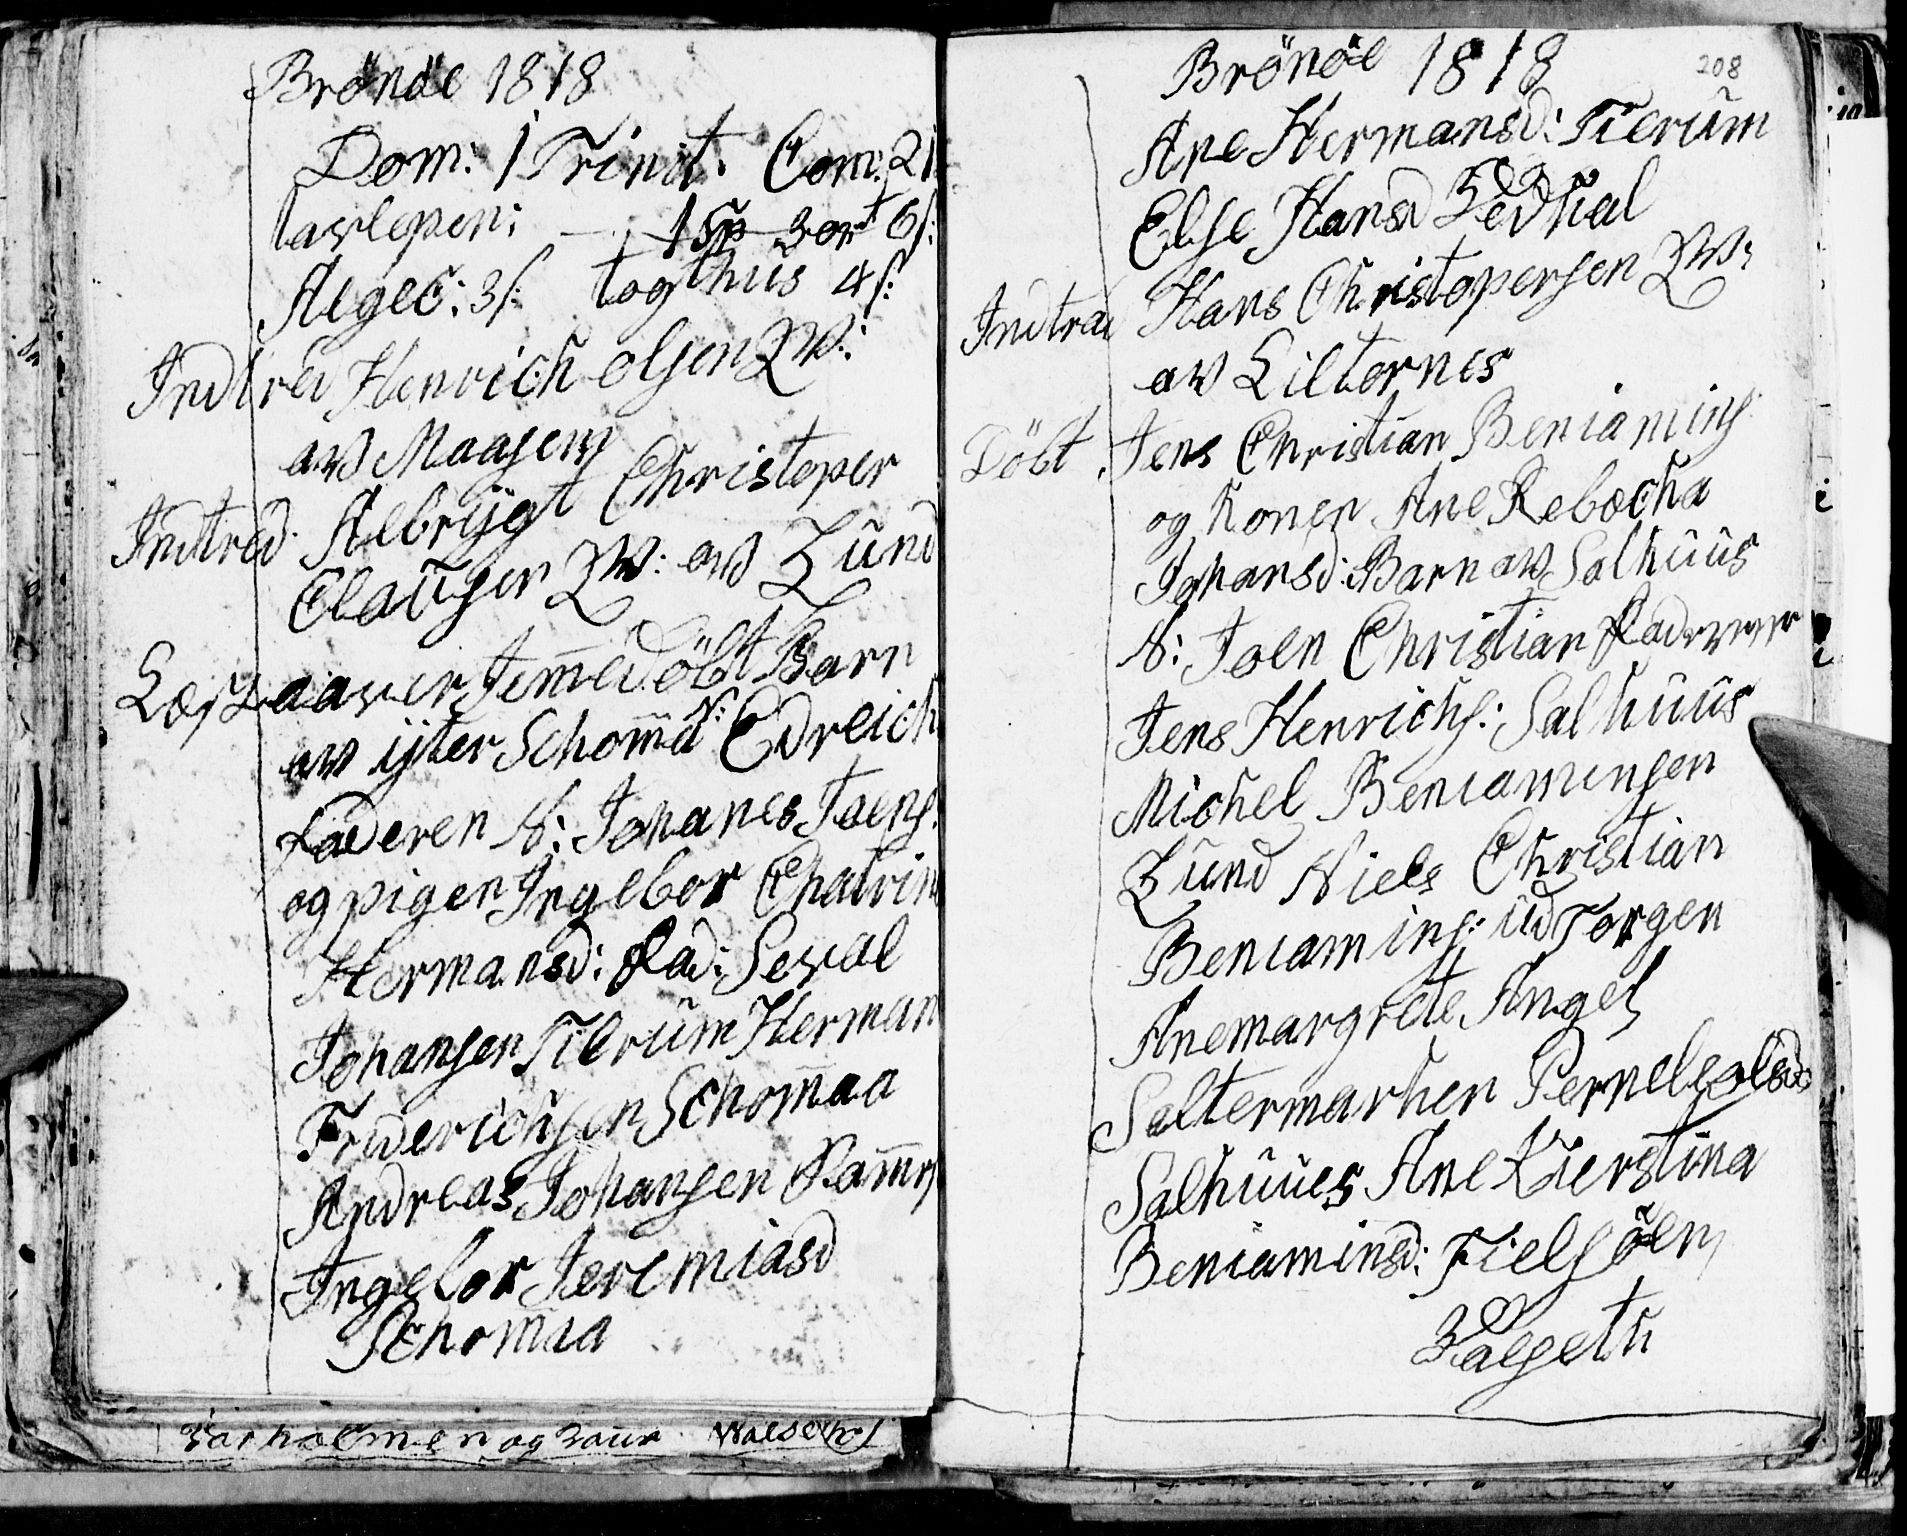 Brönöe 1818
Dom: 1 Trinit. Com: 21
tavlepen: 1 Sp 3 ort 6 s:
Aegec: 3 s: togthus 4 s:
Indtræd Henrich olsen QW:
aw Maasem
Indtræd. Aelbrÿgt Christoper
Clausen QW: aw Lund
Læst aaver Jem̄edöbt Barn
aw ÿter Schom̄a N: Edreich
Faderen N: Johanes Joens:
og pigen Ingebor Chatrin
Hermansd: Fad: Seval
Johansen Tilrūm Herman
Friderichsen Schom̄aa
Andreas Johansen Ram̄n
Ingebor Jeremiasd
Schom̄aa
og
208
Brönöe 1818
Ane Hermansd: Tilerūm
Else Hansd
Indtræd Hans Christopersen QW:
aw Liltornes
Döbt Jens Christian Beniamins:
og Konen Ane Rebecha
Johansd: Barn aw Salhūūs
N: Joen Christian Faderner
Jens Henrichs: Salhūūs
Michel Beniaminsen
Lūnd Niels Christian
Beniamins: ūd Torgen
Anemargrete Angel
Saltermarken Pernele olsd:
Salhūūes Ane Kierstina
Beniaminsd: Tielsöen